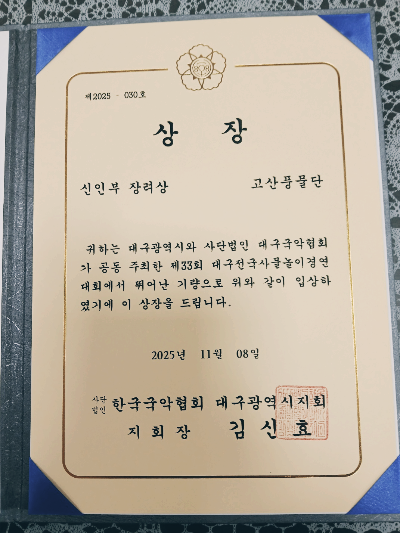 제2025 - 030호
상 장
신인부 장려상 고산풍물단
귀하는 대구광역시와 사단법인 대구국악협회
가 공동 주최한 제33회 대구전국사물놀이경연
대회에서 뛰어난 기량으로 위와 같이 입상하
였기에 이 상장을 드립니다.
2025년 11월 08일
사단
법인 한국국악협회 대구광역시지회
지회장 김신효